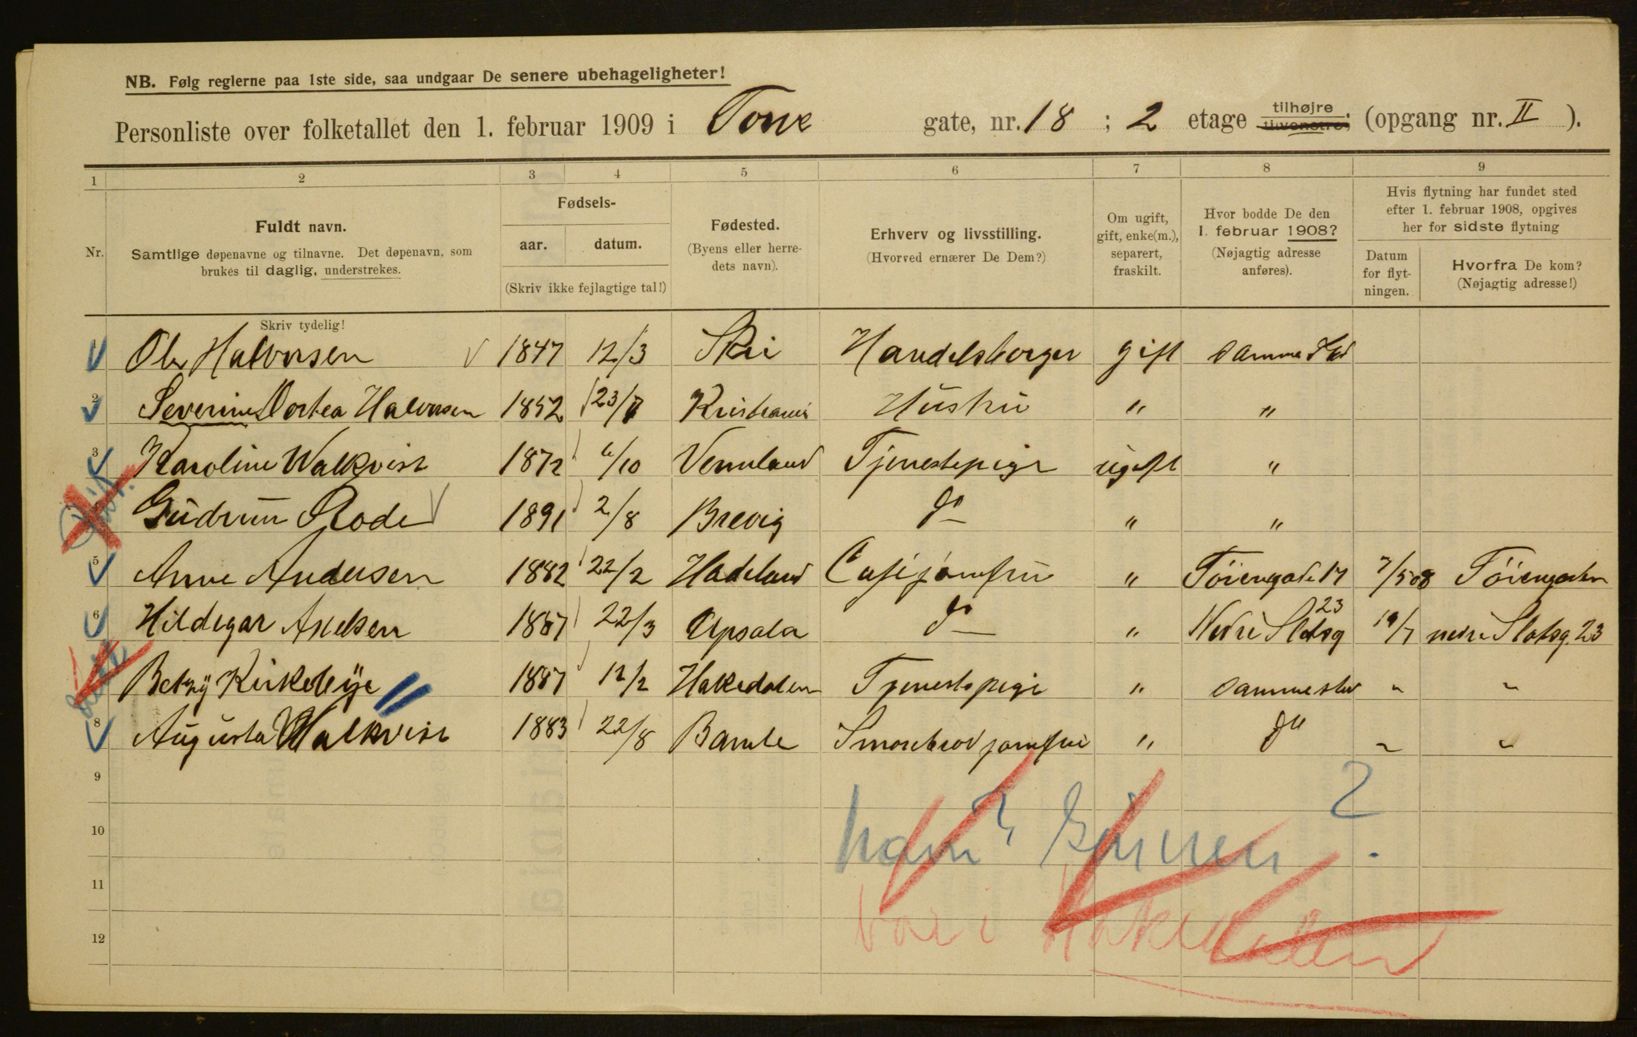 NB. Følg reglerne paa 1ste side, saa undgaar De senere ubehageligheter!
Personliste over folketallet den 1. februar 1909 i gate, nr. 18 ; 2 etage tilhøjre (opgang nr. II ).
1 2 3 4 5 6 7 8 9
Nr.
Fuldt navn.
Samtlige døpenavne og tilnavne. Det døpenavn, som
brukes til daglig, understrekes.
Skriv tydelig!
Fødsels-
aar. datum.
(Skriv ikke fejlagtige tal!)
Fødested.
(Byens eller herre-
dets navn).
Erhverv og livsstilling.
(Hvorved ernærer De Dem?)
Om ugift,
gift, enke(m.),
separert,
fraskilt.
Hvor bodde De den
1. februar 1908?
(Nøjagtig adresse
anføres).
Hvis flytning har fundet sted
efter 1. februar 1908, opgives
her for sidste flytning
Datum
for flyt-
ningen.
Hvorfra De kom?
(Nøjagtig adresse!)
Ole Halvorsen 1847 12/3 Ski Handelsborger gift samme Sted
2 Severine Dortea Halvorsen 1852 23/7 Kristiania Hustru " "
3 Karoline Walkvist 1872 /10 Vermland Tjenestepige ugift "
Gudrun 1891 2/8 Brevig do " "
5 Anne Andersen 1882 22/2 Hadeland Cafejomfru " Töiengade 17 7/5 08 Töiengaden
6 Hildegar Axelsen 1887 22/3 Upsala do " Nedre Slotsg 23 19/7 nedre Slotsg. 23
Betzÿ Kirkebÿe 1887 12/2 Hakedalen Tjenestepige " sammested " "
8 Augusta Walkvist 1883 22/8 Bamle Smørebrødjomfru " do " "
9
10
11
12
navn? ?
var i Hakedalen